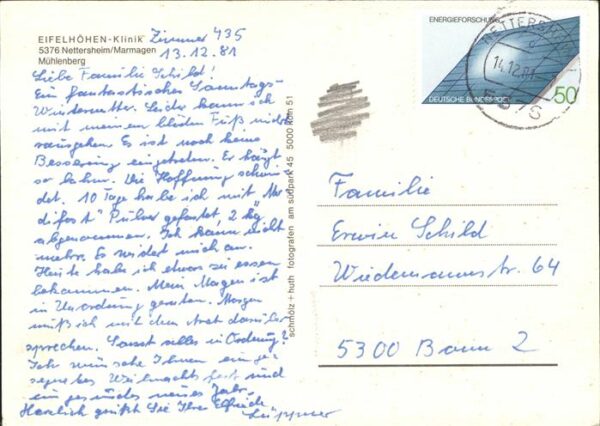 EIFELHÖHEN-Klinik Zimmer 435
5376 Nettersheim/Marmagen 13.12.81
Mühlenberg
Liebe Familie Schild!
Ein fantastisches Samstags-
Winterwetter. Leider kann ich
mit meinem blöden Fuß nicht
rausgehen. Es ist noch keine
Besserung eingetreten. Er hängt
so lahm. Die Hoffnung schwin-
det. 10 Tage habe ich mit
Pulver gefastet, 2 kg
abgenommen. Ich kann nicht
mehr. Es widert mich an.
Heute habe ich etwas zu essen
bekommen. Mein Magen ist
in Unordnung geraten. Morgen
muß ich mit dem Arzt darüber
sprechen. Sonst alles in Ordnung.
Ich wünsche Ihnen ein ge-
segnetes Weihnachtsfest und
ein gesundes neues Jahr.
Herzlich grüßt Sie Ihre Elfriede
schmölz + huth fotografen am südpark 45 5000 köln 51
ENERGIEFORSCHUNG
DEUTSCHE BUNDESPOST
50
NETTERSHEIM
14.12.81
5376
Familie
Erwin Schild
Wiedemannstr. 64
5300 Bonn 2